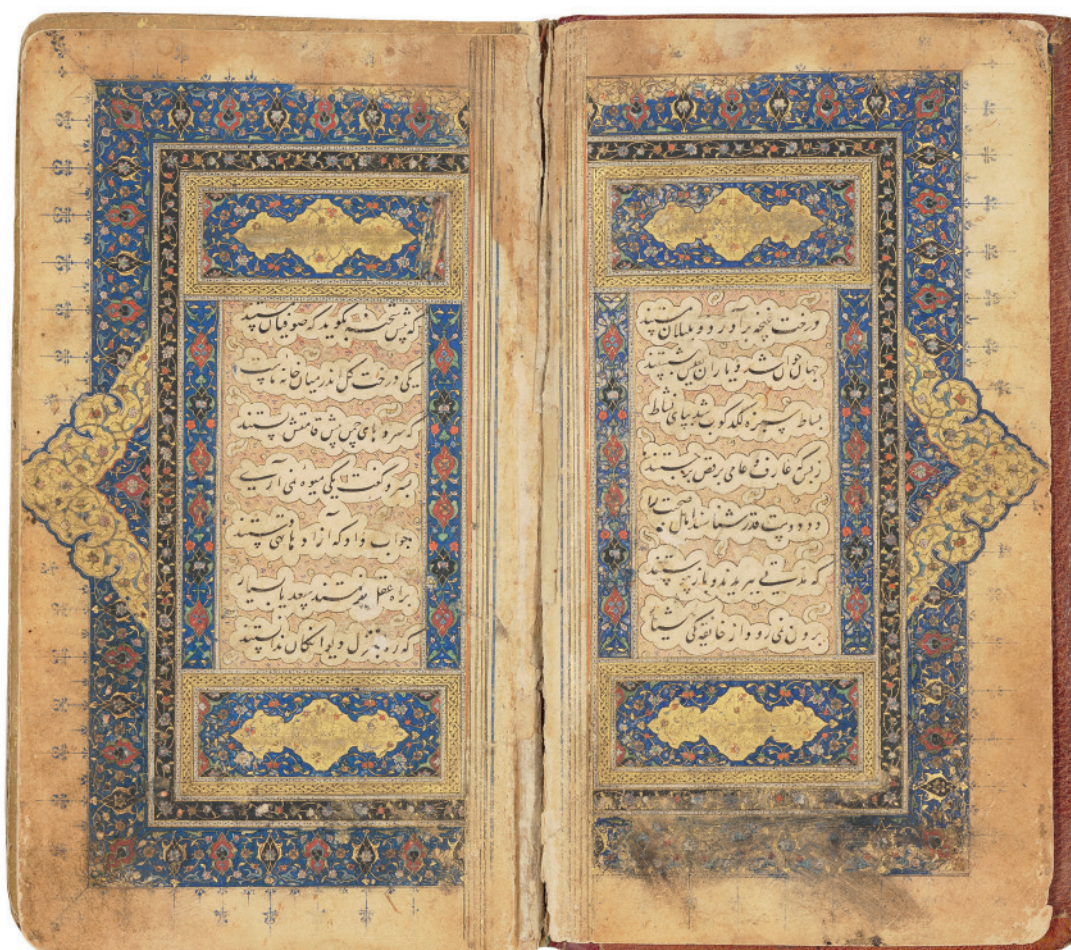 درخت غنچه برآورد و بلبلان مستند
جهان جوان شد و یاران بعیش بنشستند
بساط سبزه لکدکوب شد بپای نشاط
ز بس که عارف و عامی برقص برجستند
دو دوست قدر شناسند صحبت را
که مدتی ببریدند و باز پیوستند
برون نمی رود از خانقه یکی هشیار
که پیش شحنه بگوید که صوفیان مستند
یکی درخت گل اندر میان خانه ماست
که سروهای چمن پیش قامتش پستند
بسرو گفت یکی میوه نمی آری
جواب داد که آزادها تهی دستند
براه عقل برفتند سعدیا بسیار
که ره بمنزل دیوانگان ندانستند